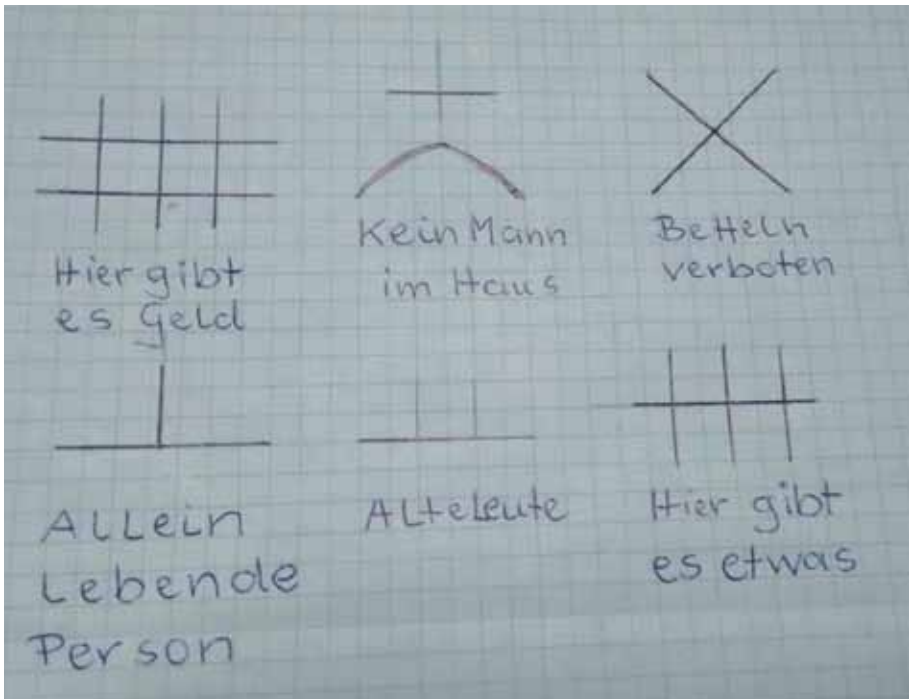 Hier gibt
es Geld
Kein Mann
im Haus
Betteln
verboten
Allein
Lebende
Person
Alteleute
Hier gibt
es etwas